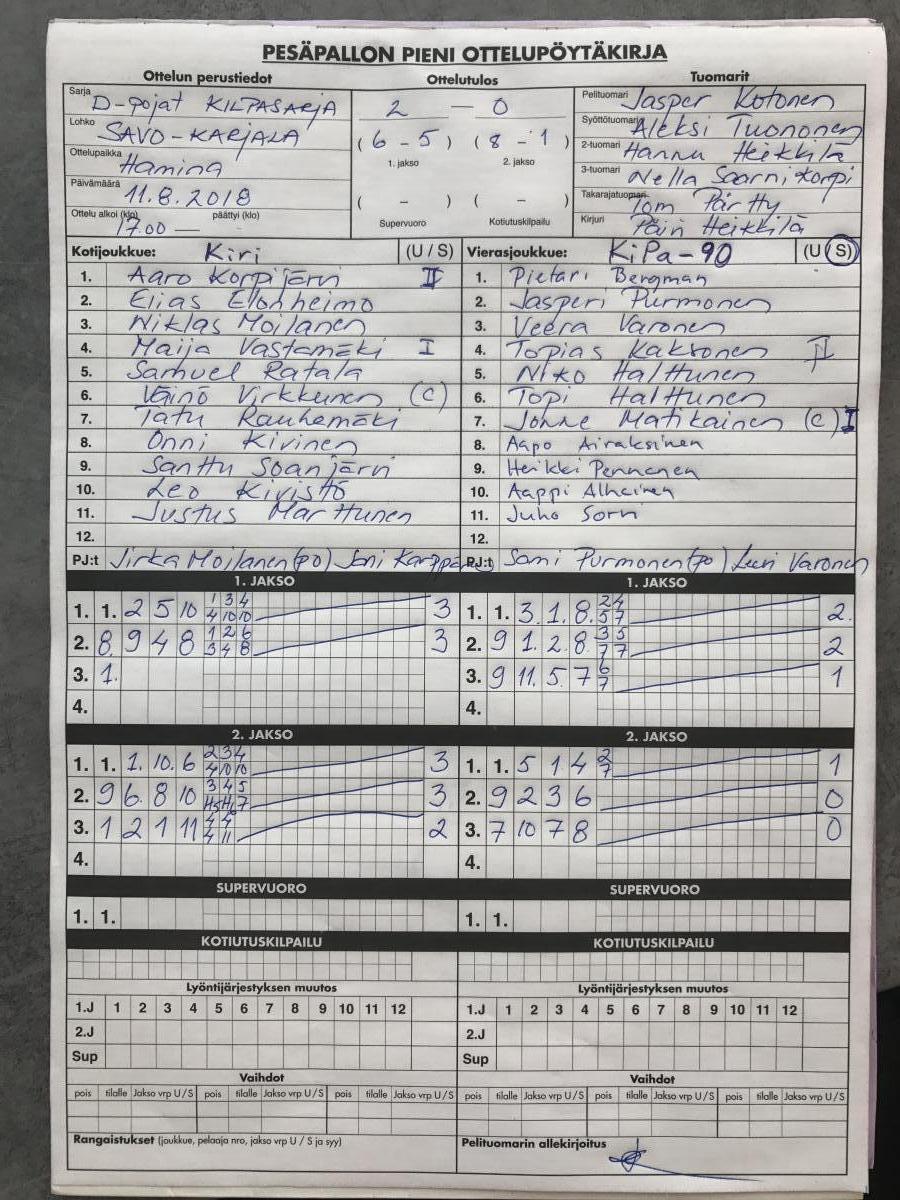 PESÄPALLON PIENI OTTELUPÖYTÄKIRJA
Ottelun perustiedot Ottelutulos Tuomarit
Sarja D-pojat KILPASARJA 2 — 0 Pelituomari Jasper Kotonen
Lohko SAVO-KARJALA (6 - 5) (8 - 1) Syöttötuomari Aleksi Tuononen
1. jakso 2. jakso
Ottelupaikka Hamina 2-tuomari Hannu Heikkilä
Päivämäärä 11.8.2018 ( - ) ( - ) 3-tuomari Nella Saarnikorpi
Takarajatuomari Tom Pärtty
Ottelu alkoi (klo) 17.00 — päättyi (klo) Supervuoro Kotiutuskilpailu Kirjuri Päin Heikkilä
Kotijoukkue: Kiri (U / S) Vierasjoukkue: KiPa-90 (U / S)
1. Aaro Korpijärvi II 1. Pietari Bergman
2. Elias Elonheimo 2. Jasperi Purmonen
3. Niklas Moilanen 3. Veera Varonen
4. Maija Vastamäki I 4. Topias Kaksonen II
5. Samuel Ratala 5. Niko Halttunen
6. Väinö Virkkunen (C) 6. Topi Halttunen
7. Tatu Rauhamäki 7. Jonne Matikainen (C) I
8. Onni Kivinen 8. Aapo Airaksinen
9. Santtu Soanjärvi 9. Heikki Pennanen
10. Leo Kivistö 10. Aappi Alhainen
11. Justus Marttunen 11. Juho Sorri
12. 12.
PJ:t Jirka Moilanen (po) Joni Karppanen PJ:t Sami Purmonen (po) Leeni Varonen
1. JAKSO 1. JAKSO
1. 1. 2 5 10 1 3 4 3 1. 1. 3. 1. 8. 2 4 2.
4 10 10 5 7
2. 8. 9 4 8 1 2 6 3 2. 9 1. 2 8. 3 5 2
3 4 8 7 7
3. 1. 3. 9 11. 5. 7 6 1
7
4. 4.
2. JAKSO 2. JAKSO
1. 1. 1. 10. 6 2 3 4 3 1. 1. 5 1 4 2 1
4 10 10 7
2. 9 6. 8 10 3 4 5 3 2. 9 2 3 6 0
3. 1 2 1 11 4 4 2 3. 7 10 7 8 0
4 11
4. 4.
SUPERVUORO SUPERVUORO
1. 1. 1. 1.
KOTIUTUSKILPAILU KOTIUTUSKILPAILU
Lyöntijärjestyksen muutos Lyöntijärjestyksen muutos
1.J 1 2 3 4 5 6 7 8 9 10 11 12 1.J 1 2 3 4 5 6 7 8 9 10 11 12
2.J 2.J
Sup Sup
Vaihdot Vaihdot
pois tilalle Jakso vrp U / S pois tilalle Jakso vrp U / S pois tilalle Jakso vrp U / S pois tilalle Jakso vrp U / S pois tilalle Jakso vrp U / S pois tilalle Jakso vrp U / S
Rangaistukset (joukkue, pelaaja nro, jakso vrp U / S ja syy) Pelituomarin allekirjoitus